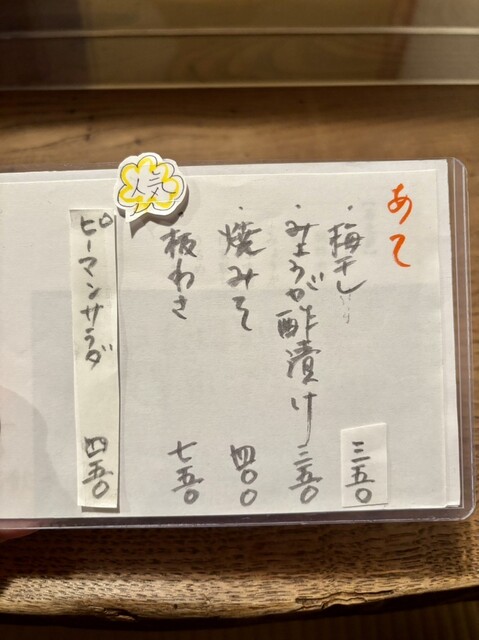 あて
・梅干し 三五〇
・みょうが酢漬け 三五〇
・焼みそ 四〇〇
・板わさ 七五〇
人気
ピーマンサラダ 四五〇